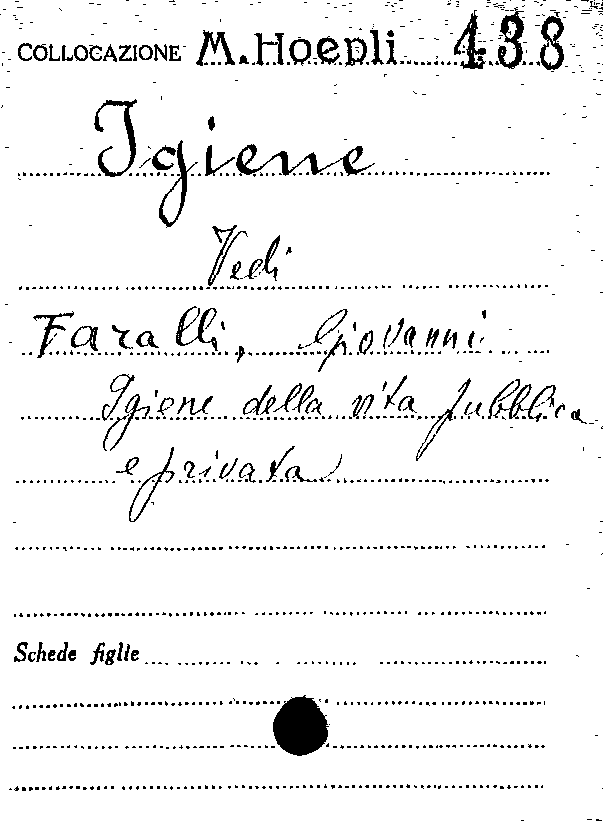 COLLOCAZIONE M. Hoepli 438
Igiene
Vedi
Faralli, Giovanni
Igiene della vita pubblica
e privata
Schede figlie